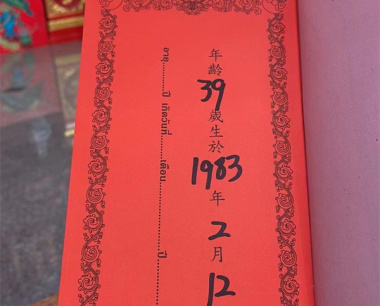 年齡39歲生於1983年2月12
อายุ........ปี เกิดวันที่............เดือน....................ปี